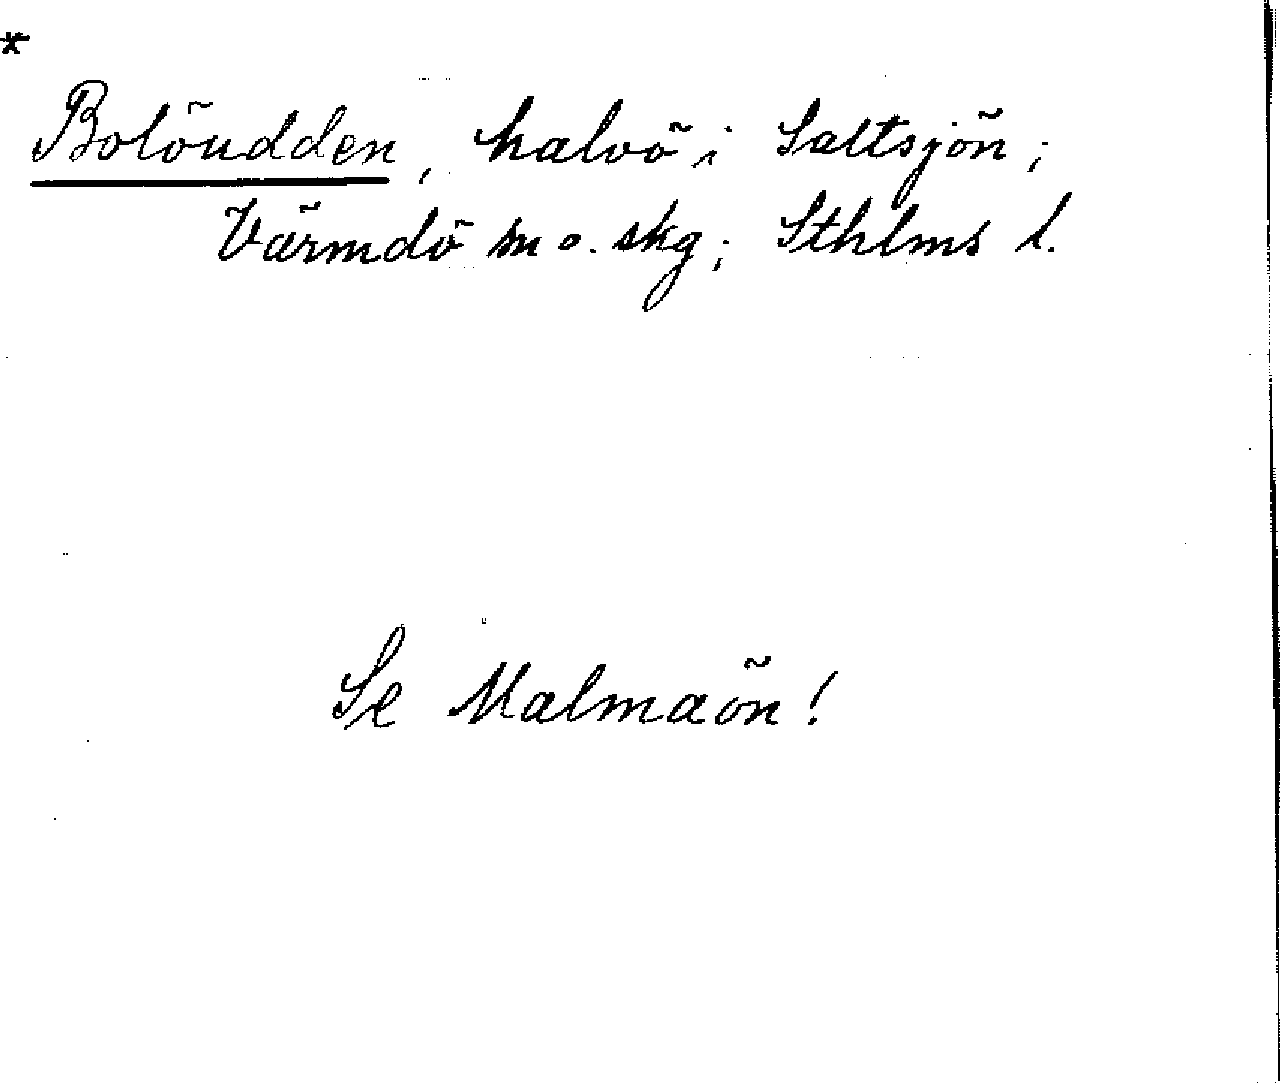 *
Bolöudden, halvö i Saltsjön;
Värmdö sn o. skg; Sthlms l.
Se Malmaön!